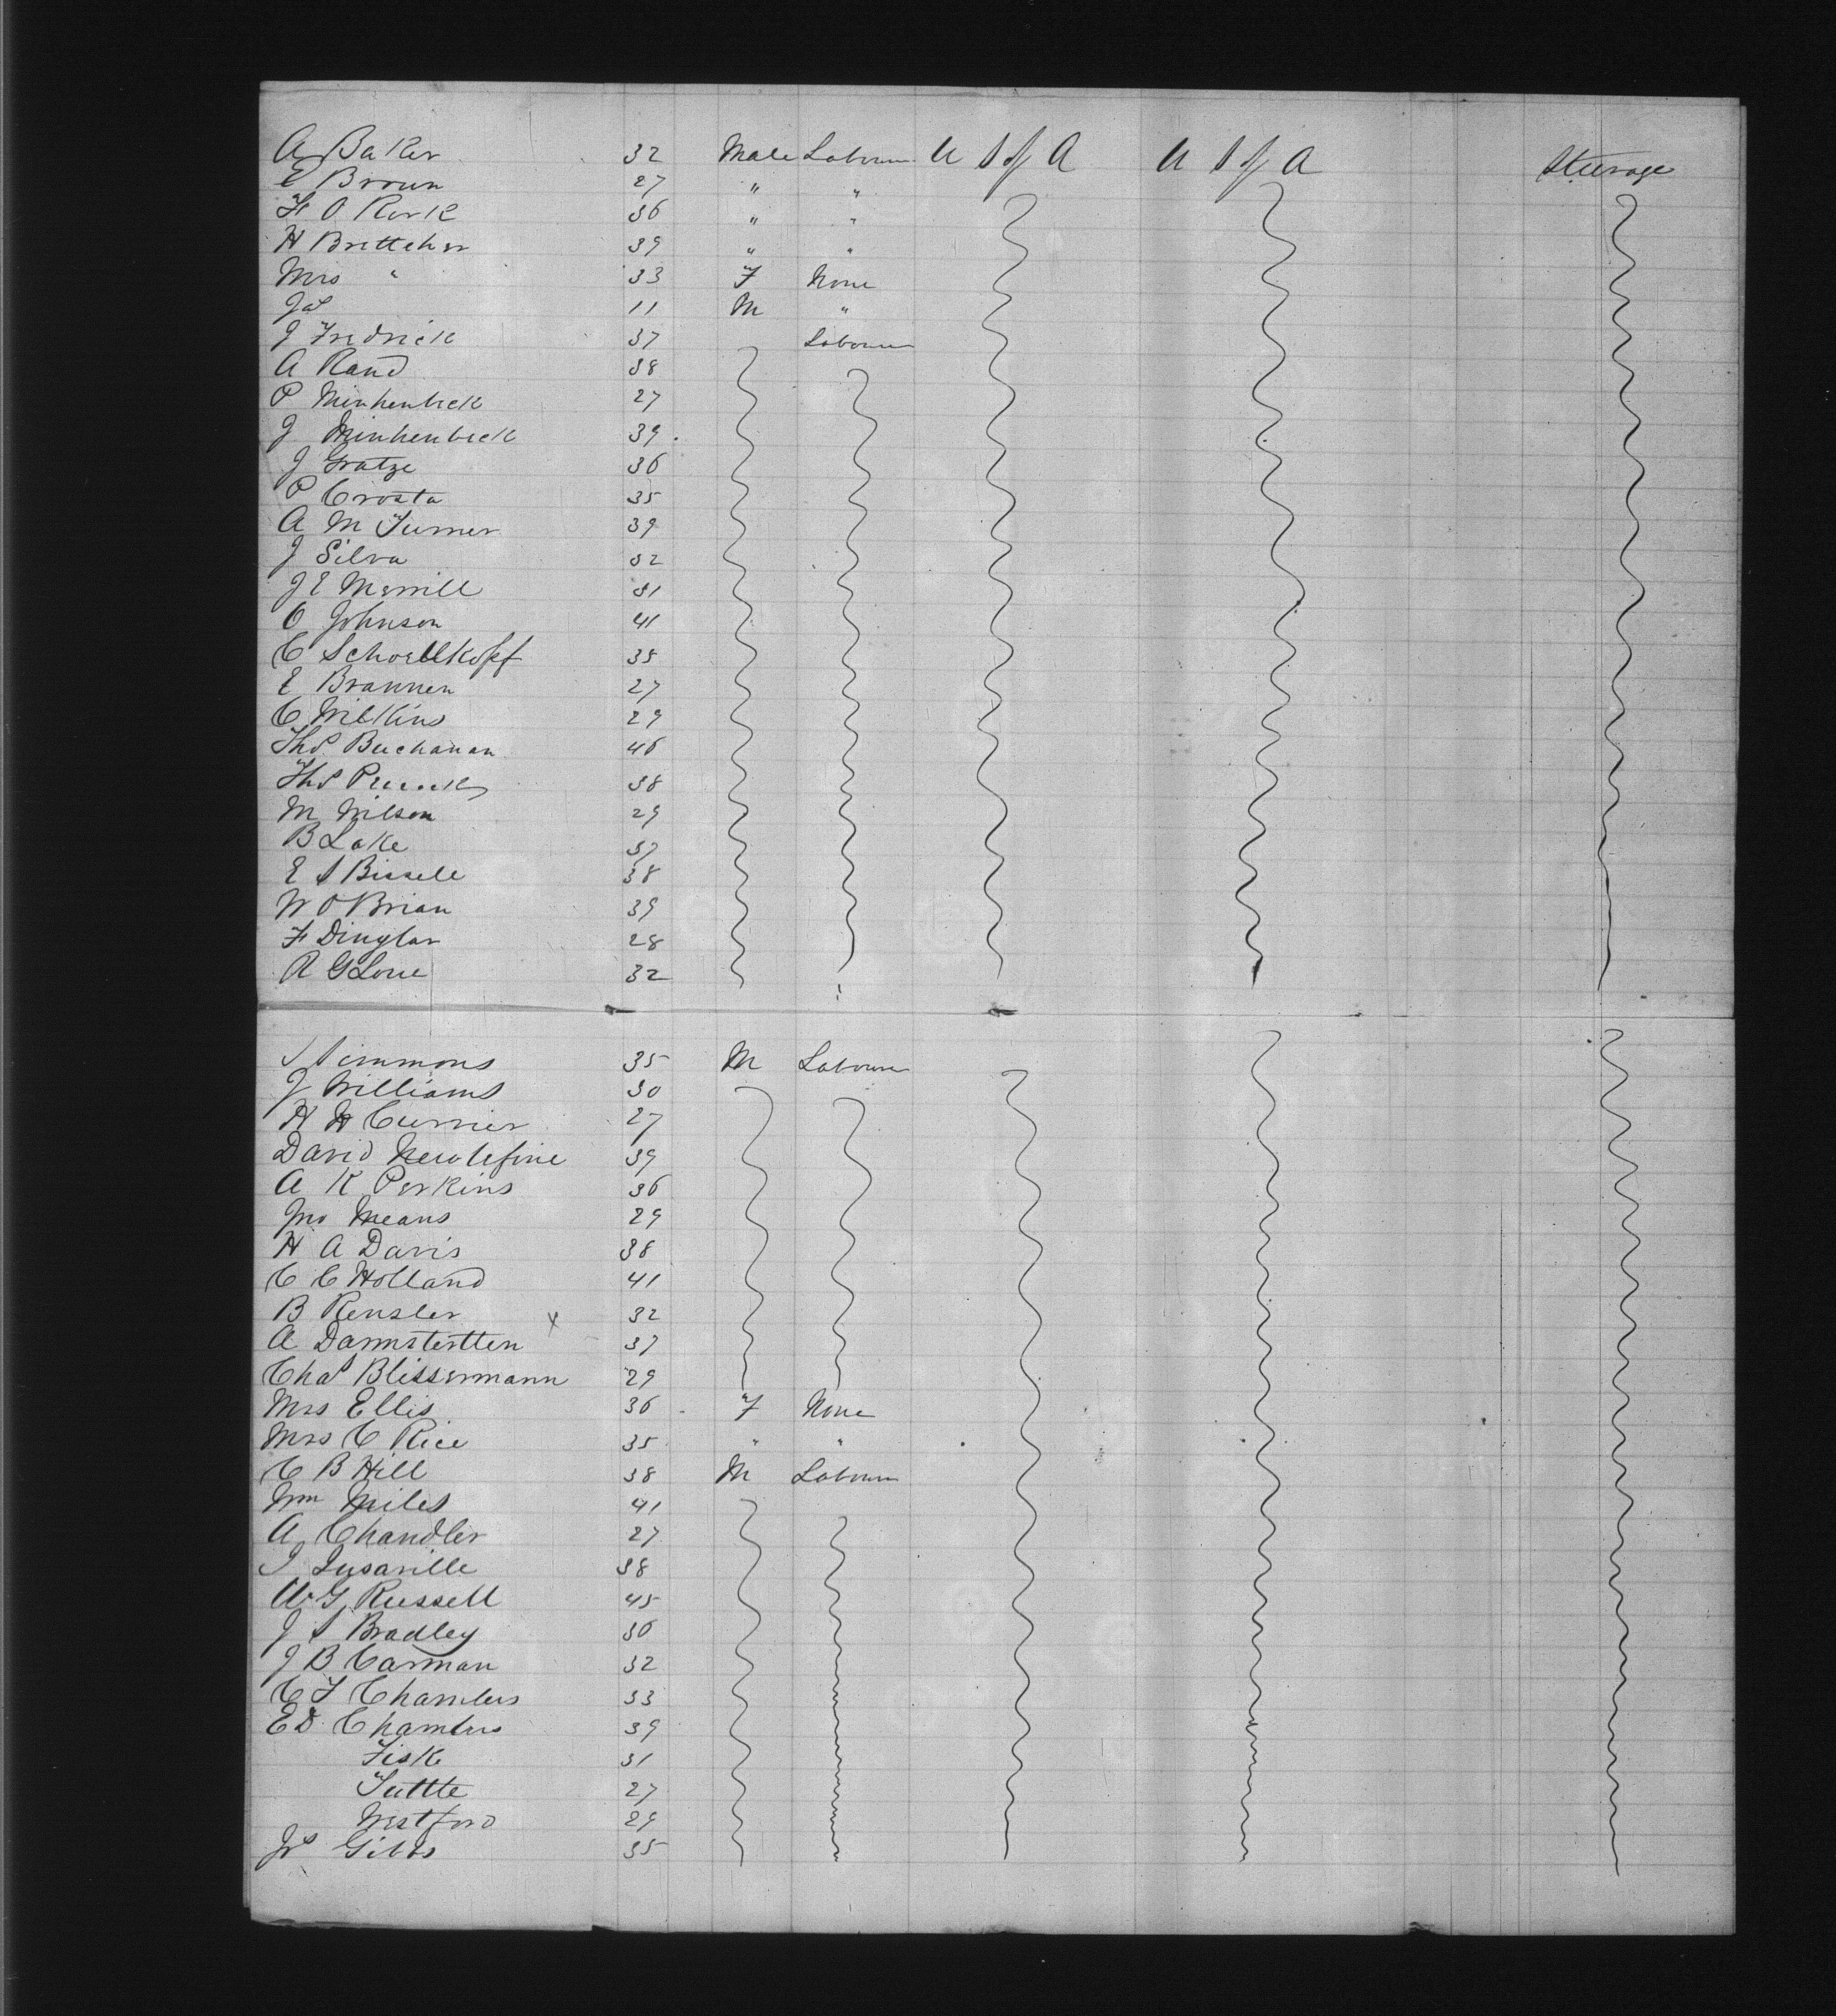 A Baker 32 Male Labourer U S of A U S of A Steerage
E Broun 27 " "
F O Rork 36 " "
H Brettcher 39 " "
Mrs " 33 F None
Jas 11 M "
J Fredrick 37 Labourer
A Rand 38
P Minkenbeck 27
J Minkenbeck 39
J Gratze 36
P Crosta 35
A M Turner 39
J Silva 32
J E Merrill 31
O Johnson 41
C Schoellkopf 35
E Brannen 27
C Wilkins 29
Thos Buchanan 46
Thos 38
M Wilson 29
B Lake 37
E S Bissell 38
W O Brian 39
F Dinglar 28
R G Lone 32
Simmons 35 M Labourer
J Williams 30
H H Currier 27
David 39
A K Perkins 36
Jno Means 29
H A Davis 38
C C Holland 41
B Rensler 32
A Darmstertten 37
Chas Blissermann 29
Mrs Ellis 36 F None
Mrs C Rice 35 " "
C B Hill 38 M Labourer
Wm Miles 41
A Chandler 27
38
W G Russell 45
J S Bradley 36
J B Carman 32
C F Chambers 33
E D Chambers 39
Fisk 31
Tuttle 27
Westford 29
Js Gibbs 35